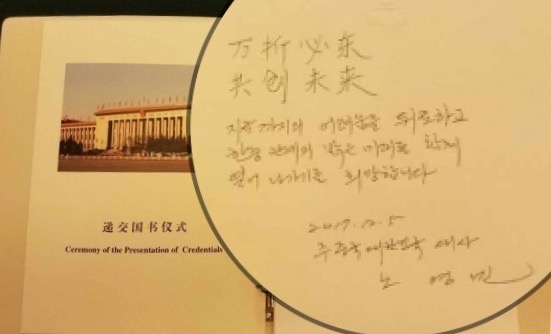 递交国书仪式
Ceremony of the Presentation of Credentials
万折必东
共创未来
지금까지의 어려움을 뒤로하고
한중 관계의 밝은 미래를 함께
열어 나가기를 희망합니다
2017. 12. 5
주 중국 대한민국 대사
노 영 민